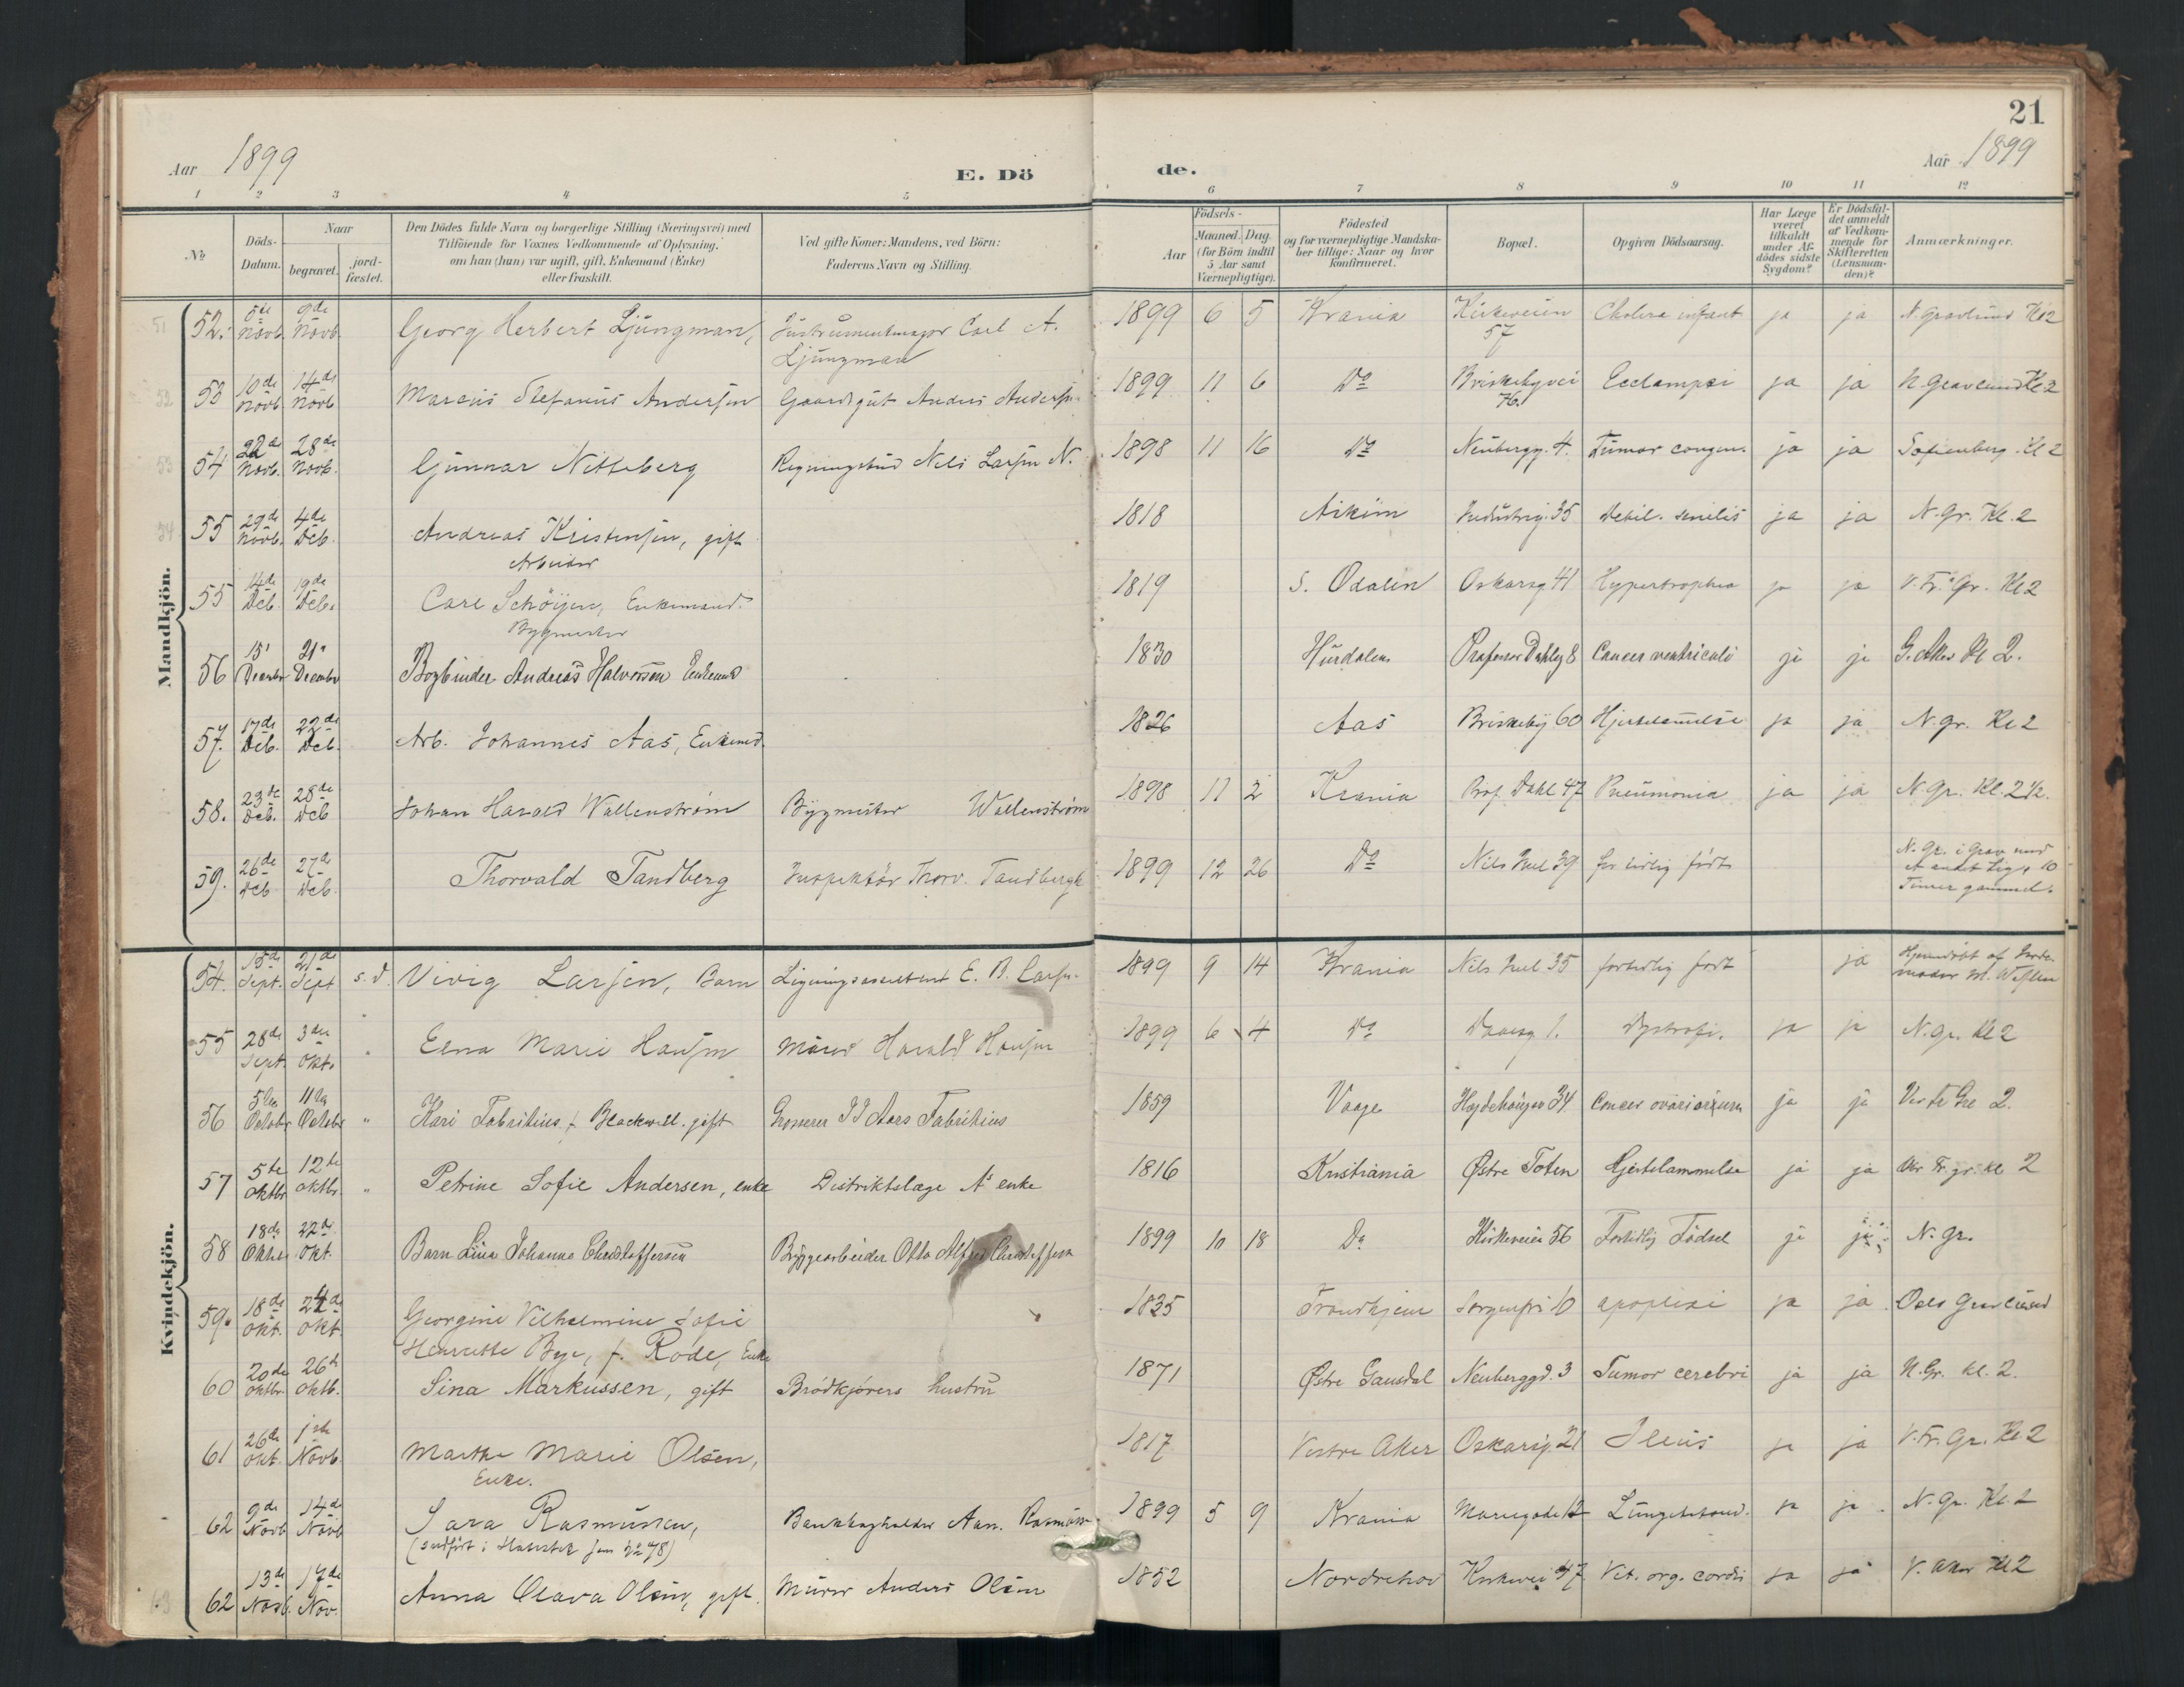 21
Aar 1899
E. Dö
de.
Aar 1899
1 2 3 4 5 6 7 8 9 10 11 12
№
Döds-Datum.
Naar
begravet.
jord-fæstet.
Den Dödes fulde Navn og borgerlige Stilling (Næringsvei) med
Tilföiende for Voxnes Vedkommende af Oplysning.
om han (hun) var ugift, gift, Enkemand (Enke)
eller fraskilt.
Ved gifte Koner: Mandens, ved Börn:
Faderens Navn og Stilling.
Födsels-
Aar
Maaned. Dag.
(for Börn indtil
5 Aar samt
Værnepligtige).
Födested
og for værnepligtige Mandska-
ber tillige: Naar og hvor
konfirmeret.
Bopæl.
Opgiven Dödsaarsag.
Har Læge
været
tilkaldt
under Af-
dödes sidste
Sygdom?
Er Dödsfal-
det anmeldt
af Vedkom-
mende for
Skifteretten
(Lensman-
den)?
Anmærkninger.
Mandkjön.
52. 5te Novb. 9de Novb. Georg Herbert Ljungman, Instrumentmager Carl A. Ljungman 1899 6 5 Krania Kirkeveien 57 Cholera infant ja ja N. Gravlund Kl 2
53 10de Novb 14de Novb Marcus Stefanus Andersen Gaardsgut Anders Andersen 1899 11 6 Do Briskebyvei Ecclampsi ja ja N. Gravlund Kl 2
54 22de Novb. 28de Novb. Gunnar Nitteberg Regningsbud Nels Larsen N. 1898 11 16 Do Neubergg. 4. Tumor congen. ja ja Sofienberg. Kl 2
55 29de Novb. 4de Deb. Andreas Kristensen, gift Arbeider 1818 Askim Industrig. 35 Debil. senilis ja ja N. Gr. Kl. 2
55 14de Deb. 19de Deb. Carl Schöyen, Enkemand. Bygmester 1819 S. Odalen Oskarsg 41 Hypertrophia ja ja V. Fr. Gr. Kl 2
56 15' December 21' December Bogbinder Andreas Halvorsen Enkemd 1830 Hurdalen Professor Dahlsg 8 Cancer ventriculi ja ja Kl 2.
57. 17de Deb. 22de Deb. Arb. Johannes Aas, Enkemd. 1826 Aas Briskeby 60 Hjertelammelse ja ja N. gr. Kl 2
58. 23de Deb. 28de Deb Johan Harald Wallenström Bygmester Wallenström 1898 11 2 Krania Prof. Dahl 47 Pneumonia ja ja N. Gr. Kl. 2 ½.
59. 26de Deb 27de Deb. Thorvald Tandberg Inspektör Thorv. Tandberg 1899 12 26 Do Nils Juel 39 for tidlig födt N. Gr. i Grav med et andet Lig, 10 Timer gammel.
Kvindekjön.
54. 15de Sept. 21de Sept s. d. Vivig Larsen, Barn E. B. Larsen 1899 9 14 Krania Nils Juel 35 fortidlig födt ja Hjemdöbt af
55 28de Sept. 3die Okt. " Elna Marie Hansen Murer Harald Hansen 1899 6 4 Do Daasg 1. Dystrofi. ja ja N. gr. Kl 2
56 5te October 11te October " Kari Fabritius f. Blackwell. gift Grosserer I I Aars Fabritius 1859 Vaage Hægdehaugen 34 Cancer ovariorum ja ja 2.
57 5te oktbr 12te oktbr. " Petrine Sofie Andersen, enke Distriktslæge As enke 1816 Kristiania Østre Toten Hjertelammelse ja ja Vor Fr. gr. kl 2
58 18de Oktbr 22de Okt. Barn Lina Johanna Christoffersen Byggearbeider Otto Alfred Christoffersen 1899 10 18 Do Kirkeveien 56 Fortidlig Födsel ja ja N. Gr.
59. 18de Okt. 24de Okt. Georgine Vilhelmine Sofie Henriette Bye, f. Rode, Enke 1835 Trondhjem Sorgenfri 10 apoplexi ja ja Oslo Gravlund
60 20de oktbr 26de oktb. Sina Markussen, gift Brödkjörers hustru 1871 Østre Gausdal Neuberggd. 3 Tumor cerebri ja ja N. Gr. kl. 2.
61 26de Okt. 1ste Novb. Marthe Marie Olsen, Enke. 1817 Vestre Aker Oskarsg. 21 Ileus ja ja V. Fr. Gr. Kl. 2
62 9de Novb 14de Novb Sara Rasmussen, Bankbogholder Rasmussen 1899 5 9 Krania Mariegade 12 Lungebetænd. ja ja N. Gr. Kl. 2
62 13de Novb. 17de Nov. Anna Olava Olsen, gift. Murer Anders Olsen 1852 Norderhov Kirkevei 47 Vit. org. cordis ja ja V. Aker Kl 2